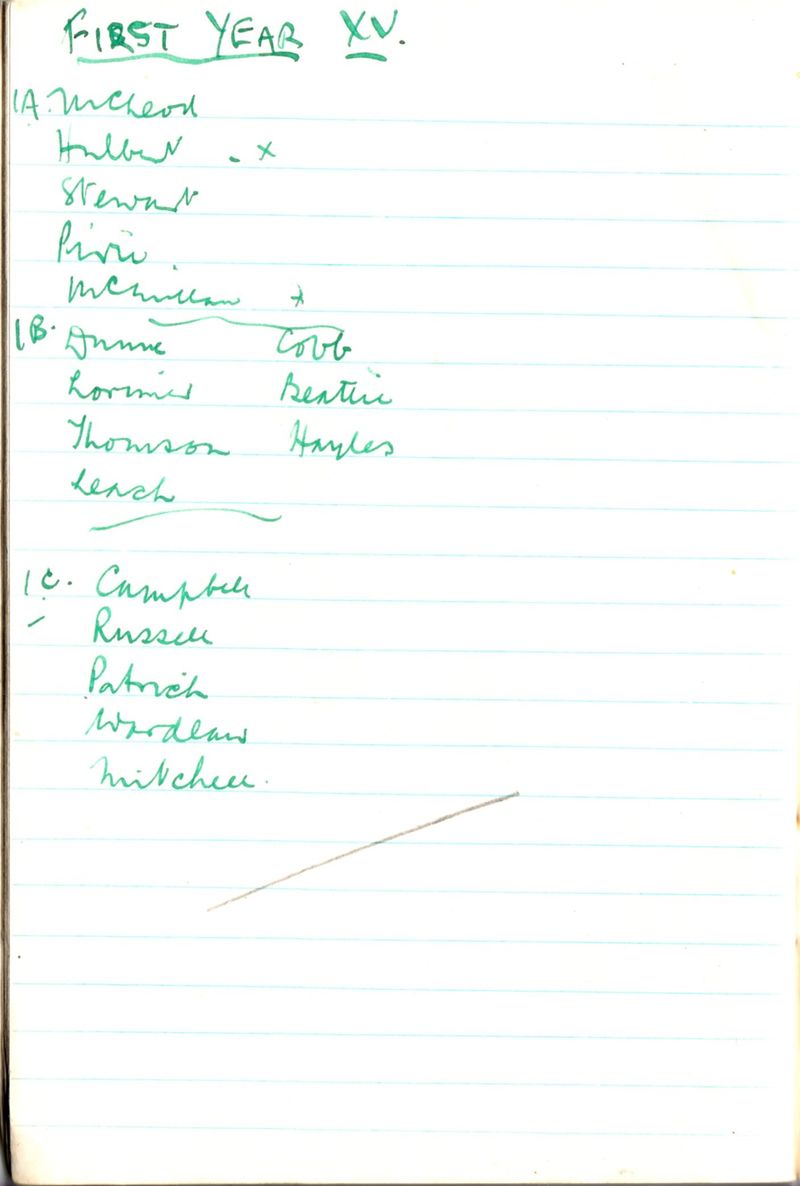 FIRST YEAR XV.
1A. McLeod
Hulbert - x
Stewart
Pirie
McMillan x
1B. Dunne Cobb
Lorimer Beattie
Thomson Hayles
Leach
1C. Campbell
Russell
Patrick
Wardlaw
Mitchell.